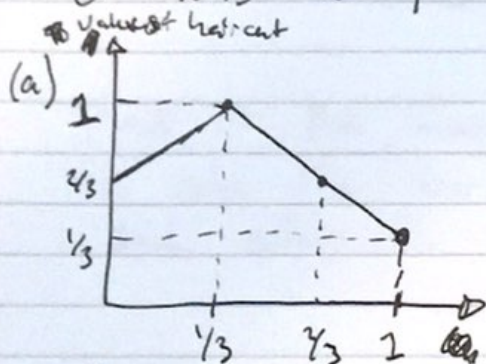 value of haircut
(a)
1
2/3
1/3
1/3 2/3 1